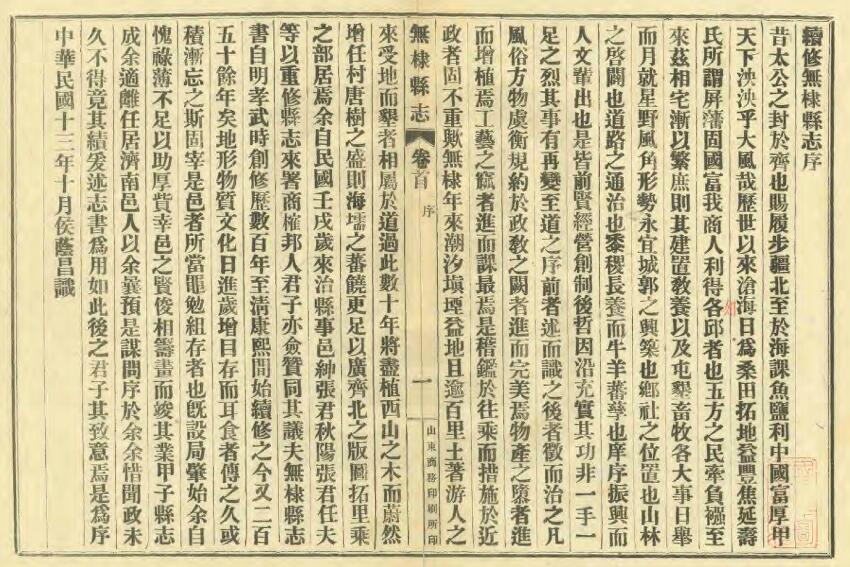 續修無棣縣志序
昔太公之封於齊也賜履步疆北至於海課魚鹽利中國富厚甲
天下泱泱乎大風哉歷世以來滄海日爲桑田拓地益豐焦延壽
氏所謂屏藩固國富我商人利得各邱者也五方之民牽負襁至
來茲相宅漸以繁庶則其建置敎養以及屯墾畜牧各大事日舉
而月就星野風角形勢永宜城郭之興築也鄕社之位置也山林
之啓闢也道路之通治也黍稷長養而牛羊蕃孳也庠序振興而
人文輩出也是皆前賢經營創制後哲因沿充實其功非一手一
足之烈其事有再變至道之序前者述而識之後者徵而治之凡
風俗方物虞衡規約於政敎之闕者進而完美焉物產之墮者進
而增植焉工藝之窳者進而課最焉是稽鑑於往乘而措施於近
政者固不重歟無棣年來潮汐塡堙益地且逾百里土著游人之
無棣縣志
卷首
序
一
山東商務印刷所印
來受地而墾者相屬於道過此數十年將盡植西山之木而蔚然
增任村唐樹之盛則海壖之蕃饒更足以廣齊北之版圖拓里乘
之部居焉余自民國壬戌歲來治縣事邑紳張君秋陽張君任夫
等以重修縣志來署商榷邦人君子亦僉贊同其議夫無棣縣志
書自明孝武時創修歷數百年至淸康熙間始續修之今又二百
五十餘年矣地形物質文化日進歲增目存而耳食者傳之久或
積漸忘之斯固宰是邑者所當黽勉組存者也旣設局肇始余自
愧祿薄不足以助厚貲幸邑之賢俊相籌畫而竣其業甲子縣志
成余適離任居濟南邑人以余曩預是謀問序於余余惜聞政未
久不得竟其績爰述志書爲用如此後之君子其致意焉是爲序
中華民國十三年十月侯蔭昌識